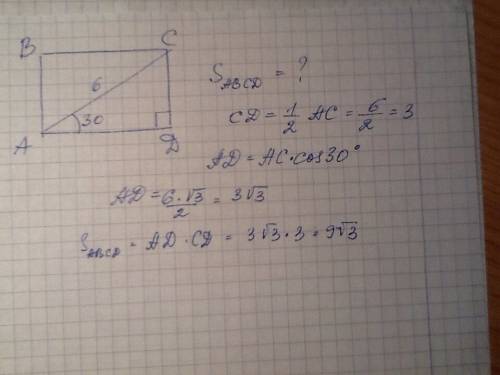 B C
6
30
A D
S_ABCD = ?
CD = 1/2 AC = 6/2 = 3
AD = AC·cos30°
AD = 6·√3/2 = 3√3
S_ABCD = AD·CD = 3√3·3 = 9√3